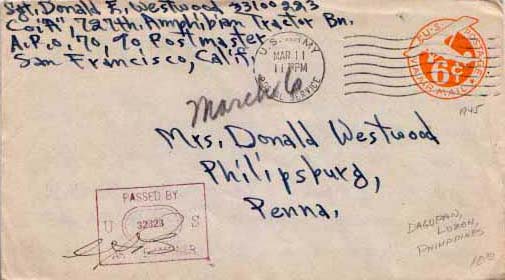 Sgt. Donald F. Westwood 33100223
Co. "A", 727th. Amphibian Tractor Bn.
A.P.O. 70, % Postmaster
San Francisco, Calif.
U.S. ARMY
MAR 11
11 PM
POSTAL SERVICE
U.S. POSTAGE
6¢
VIA AIR MAIL
1945
March 6
Mrs. Donald Westwood
Philipsburg,
Penna.
PASSED BY
U 32323 S
ARMY EXAMINER
DAGUPAN,
LUZON,
PHILIPPINES